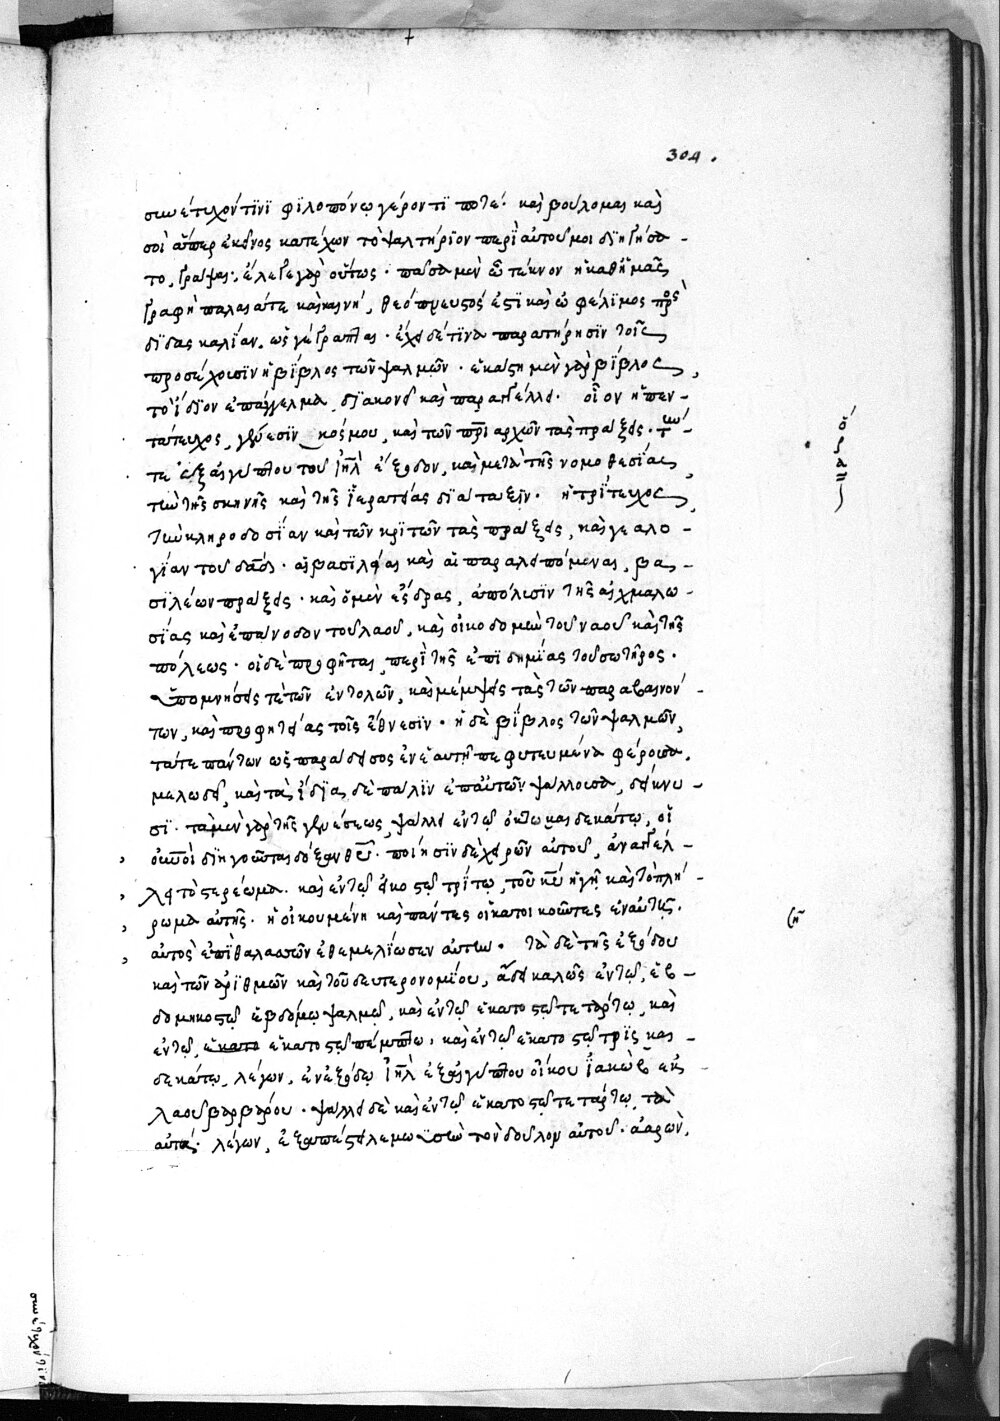 304.
συνέτυχόν τινι φιλοπόνῳ γέροντί ποτε· καὶ βούλομαι καὶ
σοὶ ἅπερ ἐκεῖνος κατέχων τὸ ψαλτήριον περὶ αὐτοῦ μοι διηγήσα-
το, γράψαι· ἔλεγε γὰρ οὕτως· πᾶσα μὲν ὦ τέκνον ἡ καθ' ἡμᾶς
γραφὴ παλαιά τε καὶ καινή, θεόπνευστός ἐστι καὶ ὠφέλιμος πρὸς
διδασκαλίαν, ὡς γέγραπται· ἔχει δέ τινα παρατήρησιν τοῖς
προσέχουσιν ἡ βίβλος τῶν ψαλμῶν· ἑκάστη μὲν γὰρ βίβλος,
τὸ ἴδιον ἐπάγγελμα διακονεῖ καὶ παραγγέλλει· οἷον ἡ πεν-
τάτευχος, γένεσιν κόσμου, καὶ τῶν πρι αρχῶν τὰς πράξεις· τήν
τε ἐξ αἰγύπτου τοῦ ιηλ ἔξοδον, καὶ μετὰ τῆς νομοθεσίας
τὴν τῆς σκηνῆς καὶ τῆς ἱερατείας διάταξιν· ἡ τρίτευχος
τὴν κληροδοσίαν καὶ τῶν κριτῶν τὰς πράξεις, καὶ γεαλο-
γίαν τοῦ δαδ· αἱ βασιλεῖαι καὶ αἱ παραλειπόμεναι, βα-
σιλέων πράξεις· καὶ ὁ μὲν ἔσδρας, ἀπόλυσιν τῆς αἰχμαλω-
σίας καὶ ἐπάνοδον τοῦ λαοῦ, καὶ οἰκοδομὴν τοῦ ναοῦ καὶ τῆς
πόλεως· οἱ δὲ προφῆται, περὶ τῆς ἐπιδημίας τοῦ σωτῆρος·
ὑπομνήσεις τε τῶν ἐντολῶν, καὶ μέμψεις τὰς τῶν παραβαινόν-
των, καὶ προφητείας τοῖς ἔθνεσιν· ἡ δὲ βίβλος τῶν ψαλμῶν,
τά τε πάντων ὡς παράδεισος ἐν ἑαυτῇ πεφυτευμένα φέρουσα,
μελωδεῖ, καὶ τὰ ἴδια δὲ πάλιν ἐπ' αὐτῶν ψάλλουσα, δείκνυ-
σι· τὰ μὲν γὰρ τῆς γενέσεως, ψάλλει ἐν τῷ ὀκτωκαιδεκάτῳ, οἱ
οὐνοὶ διηγοῦνται δόξαν θυ· ποίησιν δὲ χειρῶν αὐτοῦ, ἀναγγέλ-
λει τὸ στερέωμα· καὶ ἐν τῷ εἰκοστῷ τρίτῳ, τοῦ κυ ἡ γῆ καὶ τὸ πλή-
ρωμα αὐτῆς· ἡ οἰκουμένη καὶ πάντες οἱ κατοικοῦντες ἐν αὐτῇ·
αὐτὸς ἐπὶ θαλασσῶν ἐθεμελίωσεν αὐτήν· τὰ δὲ τῆς ἐξόδου
καὶ τῶν ἀριθμῶν καὶ τοῦ δευτερονομίου, ᾄδει καλῶς ἐν τῷ ἑβ-
δομηκοστῷ ἑβδόμῳ ψαλμῷ, καὶ ἐν τῷ ἑκατοστῷ τετάρτῳ, καὶ
ἐν τῷ ἑκατο ἑκατοστῷ πέμπτῳ, καὶ ἐν τῷ ἑκατοστῷ τρὶς και-
δεκάτῳ, λέγων, ἐν ἐξόδῳ ιηλ ἐξ αἰγύπτου οἴκου ἰακὼβ ἐκ
λαοῦ βαρβάρου· ψάλλει δὲ καὶ ἐν τῷ ἑκατοστῷ τετάρτῳ, τὰ
αὐτά· λέγων, ἐξαπέστειλε μωϋσὴν τὸν δοῦλον αὐτοῦ· ἀαρὼν,